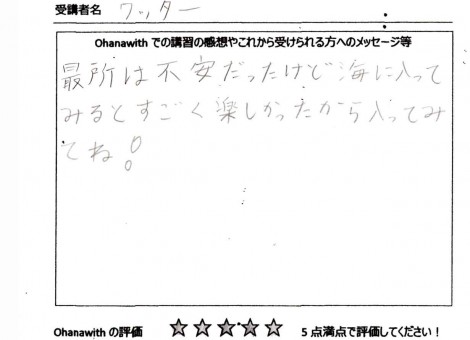 受講者名 ワッター
Ohanawith での講習の感想やこれから受けられる方へのメッセージ等
最所は不安だったけど海に入って
みるとすごく楽しかったから入ってみ
てね!
Ohanawith の評価 ☆☆☆☆☆ 5点満点で評価してください!